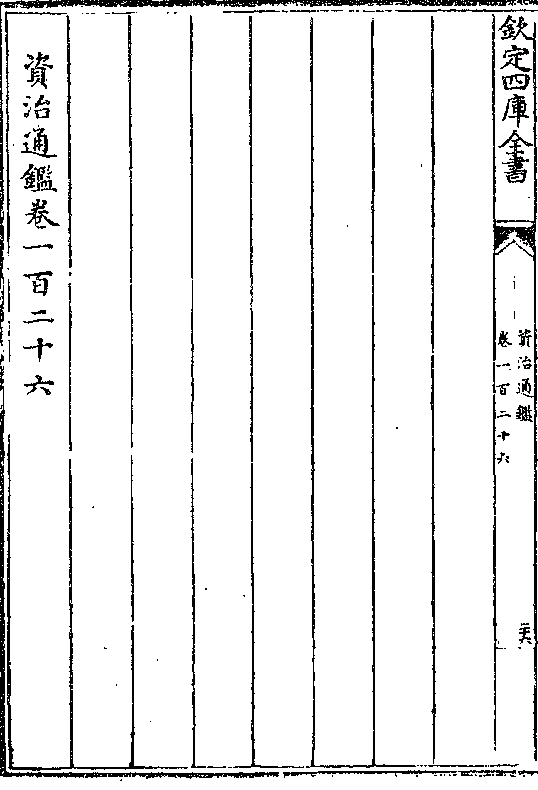 欽定四庫全書
資治通鑑
卷一百二十六
資治通鑑卷一百二十六